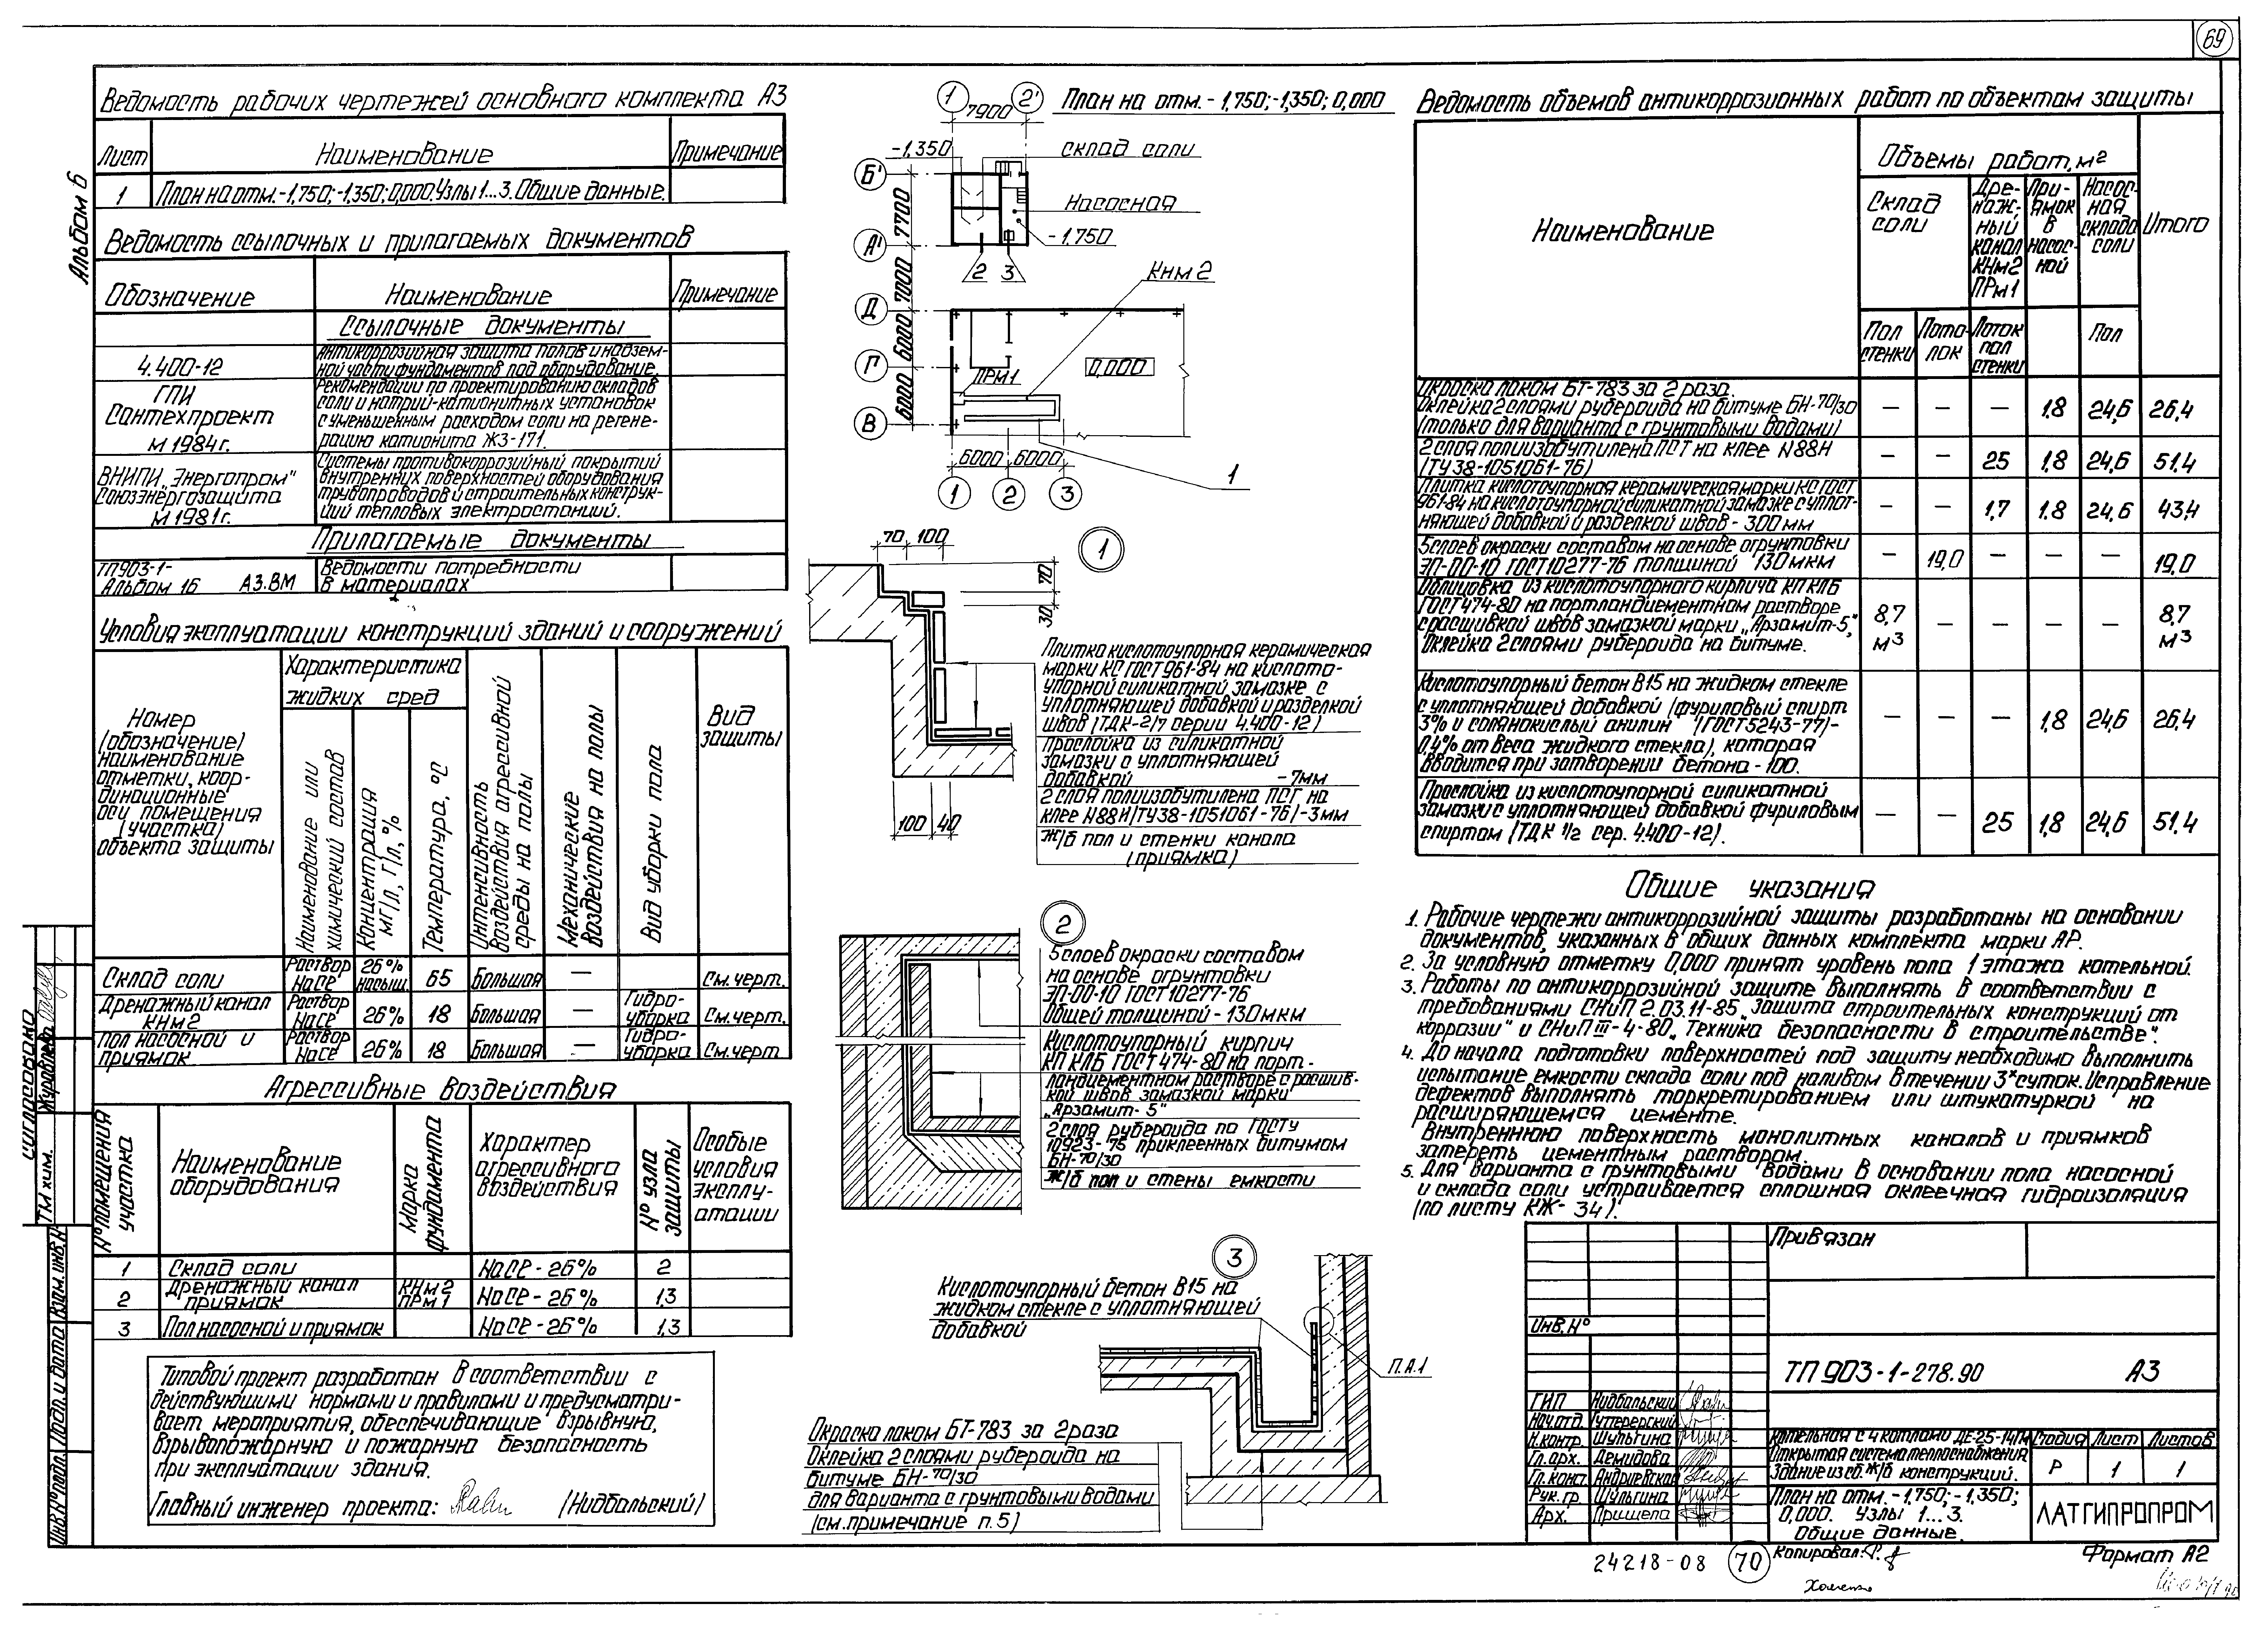 69
Альбом 6
Ведомость рабочих чертежей основного комплекта АЗ
Лист Наименование Примечание
1 План на отм. -1,750; -1,350; 0,000. Узлы 1...3. Общие данные.
Ведомость ссылочных и прилагаемых документов
Обозначение Наименование Примечание
Ссылочные документы
4.400-12 Антикоррозийная защита полов и надзем-
ной части фундаментов под оборудование.
ГПИ Сантехпроект м 1984г. Рекомендации по проектированию складов
соли и натрий-катионитных установок
с уменьшенным расходом соли на регене-
рацию катионита Ж3-171.
ВНИПИ „Энергопром" Союзэнергозащита м 1981г. Системы противокоррозийный покрытий
внутренних поверхностей оборудования
трубопроводов и строительных конструк-
ций тепловых электростанций.
Прилагаемые документы
ТП903-1- Альбом 16 АЗ.ВМ Ведомости потребности
в материалах
Условия эксплуатации конструкций зданий и сооружений
Номер
(обозначение)
наименование
отметки, коор-
динационные
оси помещения
(участка)
объекта защиты
Характеристика
жидких сред
Наименование или
химический состав
Концентрация
мг/л, г/л, %
Температура, °С
Интенсивность
воздействия агрессивной
среды на полы
Механические
воздействия на полы
Вид уборки пола
Вид
защиты
Склад соли Раствор NaCl 26% насыщ. 65 Большая — См. черт.
Дренажный канал КНм2 Раствор NaCl 26% 18 Большая — Гидро-уборка См. черт.
Пол насосной и приямок Раствор NaCl 26% 18 Большая — Гидро-уборка См. черт
Агрессивные воздействия
№ помещения
участка
Наименование
оборудования
Марка
фундамента
Характер
агрессивного
воздействия
№ узла
защиты
Особые
условия
эксплу-
атации
1 Склад соли NaCl - 26% 2
2 Дренажный канал приямок КНм2 ПРм1 NaCl - 26% 1,3
3 Пол насосной и приямок NaCl - 26% 1,3
Типовой проект разработан в соответствии с
действующими нормами и правилами и предусматри-
вает мероприятия, обеспечивающие взрывную,
взрывопожарную и пожарную безопасность
при эксплуатации здания.
Главный инженер проекта: (Нидбальский)
План на отм. -1,750; -1,350; 0,000
1 2'
7900
-1,350
Склад соли
Б'
7700
Насосная
А'
-1,750
2 3
7000
КНм 2
Д
6000
Г
0,000
ПРм1
6000
В
6000 6000
1 2 3
1
1
70 100
70
30
100 40
Плитка кислотоупорная керамическая
марки КС ГОСТ 961-84 на кислото-
упорной силикатной замазке с
уплотняющей добавкой и разделкой
швов (ТДК-2/7 серии 4.400-12)
Прослойка из силикатной
замазки с уплотняющей
добавкой -7мм
2 слоя полиизобутилена ПСГ на
клее №88Н (ТУ38-1051061-76) -3мм
Ж/б пол и стенки канала
(приямка)
2
5 слоев окраски составом
на основе огрунтовки
ЭП-00-10 ГОСТ 10277-76
общей толщиной - 130мкм
Кислотоупорный кирпич
КП КЛБ ГОСТ 474-80 на порт-
ландцементном растворе с расшив-
кой швов замазкой марки
„Арзамит-5"
2 слоя рубероида по ГОСТу
10923-75 приклеенных битумом
БН-70/30
Ж/б пол и стены емкости
3
Кислотоупорный бетон В15 на
жидком стекле с уплотняющей
добавкой
П.А.1
Окраска лаком БТ-783 за 2 раза
Оклейка 2 слоями рубероида на
битуме БН-70/30
для варианта с грунтовыми водами
(см. примечание п.5)
Ведомость объемов антикоррозионных работ по объектам защиты
Наименование
Объемы работ, м²
Склад соли
Дре-наж-ный канал КНм2 ПРм1
При-ямок в насос-ной
Насос-ная склада соли
Итого
Пол стенки Пото-лок Лоток пол стенки Пол
Окраска лаком БТ-783 за 2 раза.
Оклейка 2 слоями рубероида на битуме БН-70/30
(только для варианта с грунтовыми водами)
— — — 1,8 24,6 26,4
2 слоя полиизобутилена ПСГ на клее №88Н
(ТУ 38-1051061-76)
— — 25 1,8 24,6 51,4
Плитка кислотоупорная керамическая марки КС ГОСТ
961-84 на кислотоупорной силикатной замазке с уплот-
няющей добавкой и разделкой швов - 300мм
— — 1,7 1.8 24,6 43,4
5 слоев окраски составом на основе огрунтовки
ЭП-00-10 ГОСТ 10277-76 толщиной 130мкм
— 19,0 — — — 19,0
Облицовка из кислотоупорного кирпича КП КЛБ
ГОСТ 474-80 на портландцементном растворе
с расшивкой швов замазкой марки „Арзамит-5",
Оклейка 2 слоями рубероида на битуме.
8,7 м³ — — — — 8,7 м³
Кислотоупорный бетон В15 на жидком стекле
с уплотняющей добавкой (фуриловый спирт
3% и солянокислый анилин (ГОСТ5243-77)-
0,4% от веса жидкого стекла), которая
вводится при затворении бетона - 100.
— — — 1,8 24,6 26,4
Прослойка из кислотоупорной силикатной
замазки с уплотняющей добавкой фуриловым
спиртом (ТДК 1/2 сер. 4.400-12).
— — 25 1,8 24,6 51,4
Общие указания
1. Рабочие чертежи антикоррозийной защиты разработаны на основании
документов, указанных в общих данных комплекта марки АР.
2. За условную отметку 0,000 принят уровень пола 1 этажа котельной.
3. Работы по антикоррозийной защите выполнять в соответствии с
требованиями СНиП 2.03.11-85 „Защита строительных конструкций от
коррозии" и СНиП III-4-80 „Техника безопасности в строительстве".
4. До начала подготовки поверхностей под защиту необходимо выполнить
испытание емкости склада соли под наливом в течении 3х суток. Исправление
дефектов выполнять торкретированием или штукатуркой на
расширяющемся цементе.
Внутреннюю поверхность монолитных каналов и приямков
затереть цементным раствором.
5. Для варианта с грунтовыми водами в основании пола насосной
и склада соли устраивается сплошная оклеечная гидроизоляция
(по листу КЖ-34).
Привязан
Инв. №
ТП 903-1-278.90 АЗ
ГИП Нидбальский
Нач.отд. Гуттерерский
Н.контр. Шульгина
Гл.арх. Демидова
Гл.конст. Андриевская
Рук. гр. Шульгина
Арх. Прищепа
Котельная с 4 котлами ДЕ-25-14ГМ
Открытая система теплоснабжения
Здание из сб. ж/б конструкций.
Стадия Лист Листов
Р 1 1
План на отм. -1,750; -1,350;
0,000. Узлы 1...3.
Общие данные.
ЛАТГИПРОПРОМ
24218-08 70 Копировал: Формат А2
Согласовано
ТМ хим. Журавлева
Инв.№подл. Подп. и дата Взам. инв. №